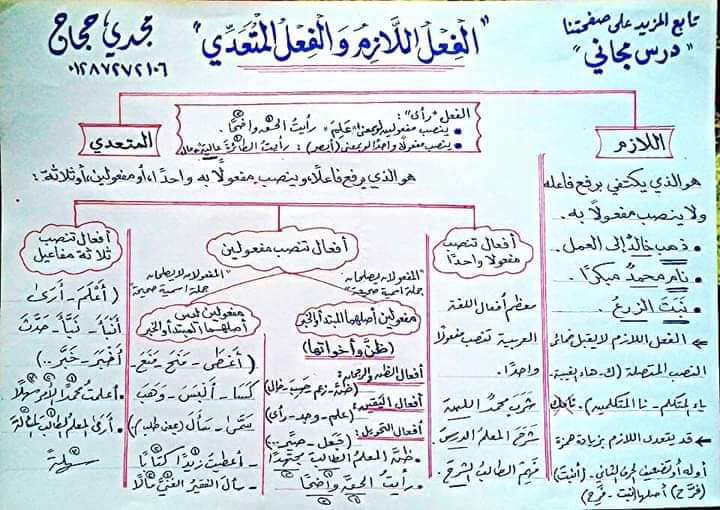 تابع المزيد على صفحتنا
"درس مجاني"
"الفِعْلُ اللَّازِمُ وَالفِعْلُ المُتَعَدِّي"
مجدي حجاج
٠١٢٨٧٢٧٢١٠٦
الفعل "رأى":
ينصب مفعولين لو بمعنى "عَلِمَ" رأيتُ الحقَّ واضحًا.
ينصب مفعولًا واحدًا لو بمعنى (أبصر): رأيتُ الطائرةَ
اللازم
هو الذي يكتفي برفع فاعله
ولا ينصب مفعولًا به.
ذهب خالدٌ إلى العمل.
نام محمدٌ مبكرًا.
نَبَتَ الزرعُ.
الفعل اللازم لا يقبل ضمائر
النصب المتصلة (ك - هاء الغيبة
ياء المتكلم - نا المتكلمين).
قد يتعدى اللازم بزيادة همزة
أوله أو تضعيف الحرف الثاني. (أنبتَ)
(فرَّح) أصلها (نبت - فرح)
المتعدي
هو الذي يرفع فاعلًا، وينصب مفعولًا به واحدًا، أو مفعولين، أو ثلاثة:
أفعال تنصب
مفعولًا واحدًا
معظم أفعال اللغة
العربية تنصب مفعولًا
واحدًا.
شرح المعلم الدرسَ
فهم الطالب الشرحَ.
أفعال تنصب مفعولين
"المفعولان يصلحان
جملة اسمية صحيحة"
مفعولين أصلهما المبتدأ والخبر
(ظنَّ وأخواتها)
أفعال الظن والرجحان:
(ظنَّ - زعم - حسب - خال)
أفعال اليقين:
(علم - وجد - رأى)
أفعال التحويل:
(جعل - صيَّر ...)
ظنَّ المعلمُ الطالبَ مجتهدًا
رأيت الحقَّ واضحًا
"المفعولان لا يصلحان
جملة اسمية صحيحة"
مفعولين ليس
أصلهما المبتدأ والخبر
(أعطى - منح - منع -
كسا - ألبس - وهب
سأل (بمعنى طلب)
أعطيت زيدًا كتابًا
سأل الفقيرُ الغنيَّ مالًا
أفعال تنصب
ثلاثة مفاعيل
(أَعْلَمَ - أَرَى
أنبأ - نبَّأ - حدَّث
أخبر - خبَّر ..)
أعلمتُ محمدًا الأمرَ سهلًا
أرى المعلمُ الطالبَ المسألةَ
سهلةً